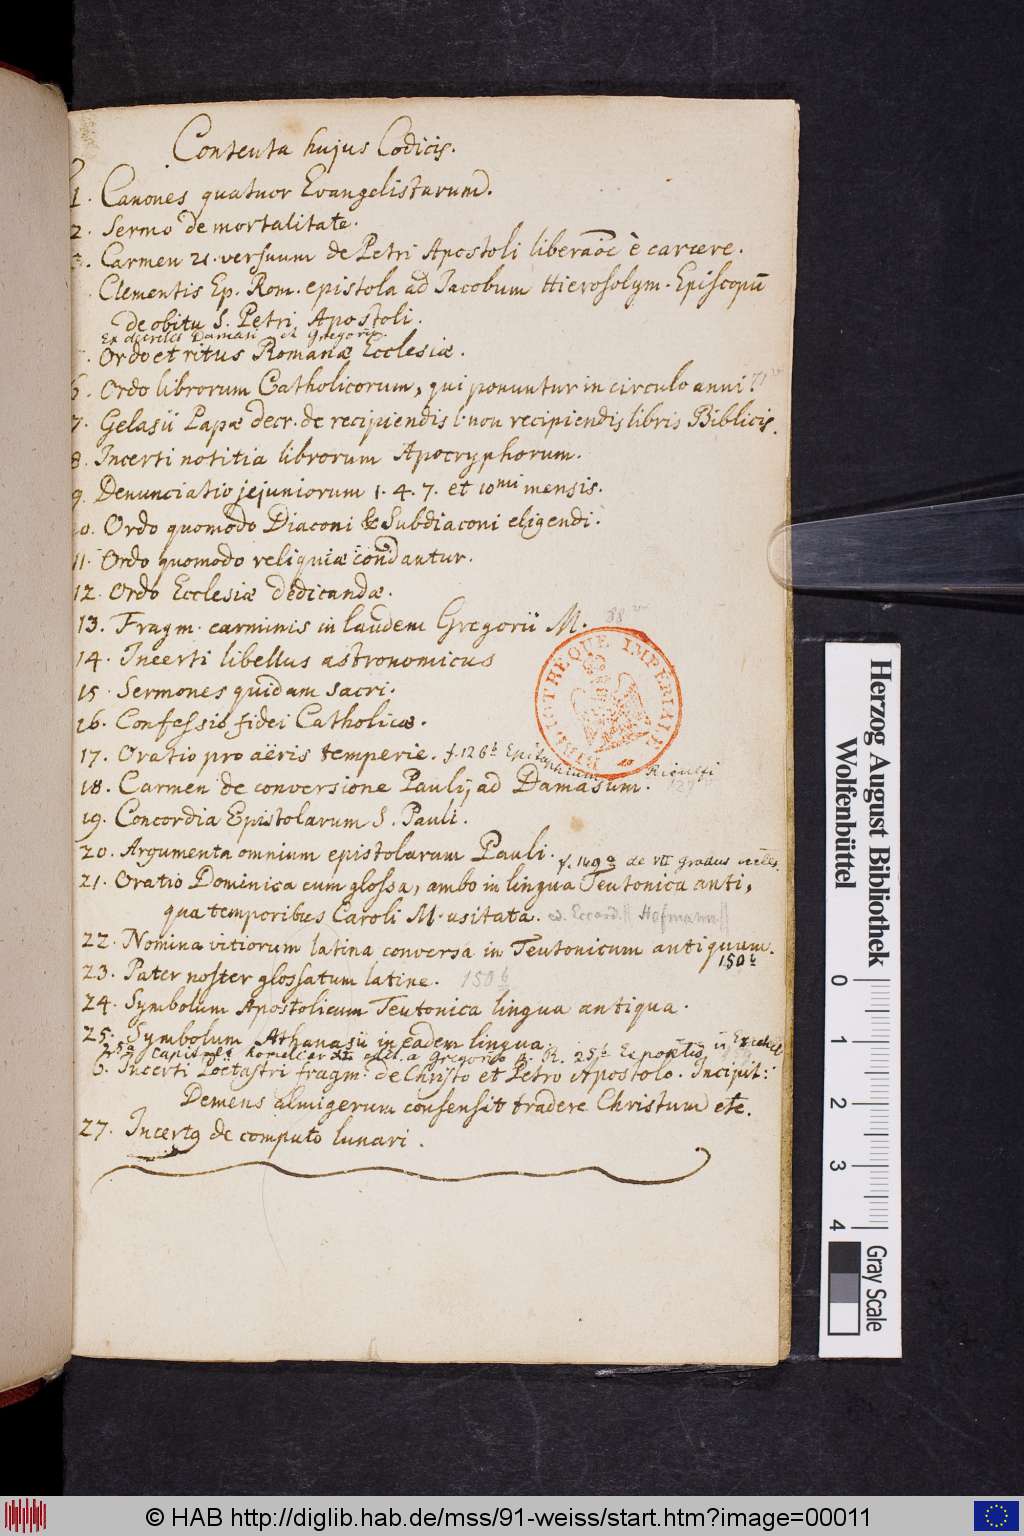 Contenta hujus Codicis.
1. Canones quatuor Evangelistarum.
2. Sermo de mortalitate.
3. Carmen 21. versuum de Petri Apostoli è carcere.
Clementis Ep. Rom. epistola ad Jacobum Hierosolym. Episcopū
de obitu S. Petri Apostoli.
Ex decretis Damasi et Gregorii
Ordo et ritus Romanæ Ecclesiæ.
6. Ordo librorum Catholicorum, qui ponuntur in circulo anni.
7. Gelasii Papæ decr. de recipiendis l. non recipiendis libris Biblicis.
8. Incerti notitia librorum Apocryphorum.
9. Denunciatio jejuniorum 1. 4. 7. et 10mi mensis.
10. Ordo quomodo Diaconi & Subdiaconi eligendi.
11. Ordo quomodo reliquiæ condantur.
12. Ordo Ecclesiæ dedicandæ.
13. Fragm. carminis in laudem Gregorii M. 88
14. Incerti libellus astronomicus
15. Sermones quidam sacri.
16. Confessio fidei Catholicæ.
BIBLIOTHEQUE IMPERIALE
17. Oratio pro aëris temperie. f. 126b Epitaphium Riculfi
18. Carmen de conversione Pauli, ad Damasum.
19. Concordia Epistolarum S. Pauli.
20. Argumenta omnium epistolarum Pauli. f. 149a de VII gradus eccles.
21. Oratio Dominica cum glossa, ambo in lingua Teutonica anti,
qua temporibus Caroli M. usitata. ed. Eccard. Hofmann
22. Nomina vitiorum latina conversa in Teutonicum antiquum.
150b
23. Pater noster glossatum latine. 150b
24. Symbolum Apostolicum Teutonica lingua antiqua.
25. Symbolum Athanasii in eadem lingua.
a Gregorio 25b in Ezechiel
6. Incerti Poetastri fragm. de Christo et Petro Apostolo. Incipit:
Demens almigerum consensit tradere Christum etc.
27. Incertq de computo lunari.
Herzog August Bibliothek
Wolfenbüttel
0 1 2 3 4
Gray Scale
© HAB http://diglib.hab.de/mss/91-weiss/start.htm?image=00011